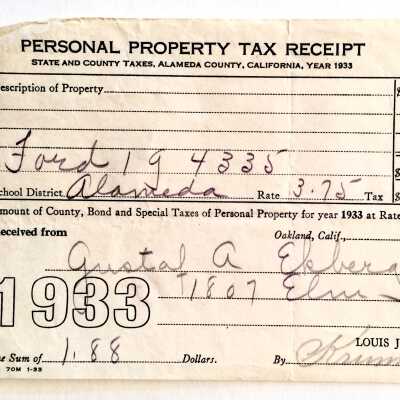 PERSONAL PROPERTY TAX RECEIPT
STATE AND COUNTY TAXES, ALAMEDA COUNTY, CALIFORNIA, YEAR 1933
escription of Property $
Ford 19 4335 $
chool District. Alameda Rate 3.75 Tax $
mount of County, Bond and Special Taxes of Personal Property for year 1933 at Rate
eceived from Oakland, Calif.,
Gustaf A Ekberg
1933 1807 Elm
LOUIS J
e Sum of 1.88 Dollars. By
70M 1-33